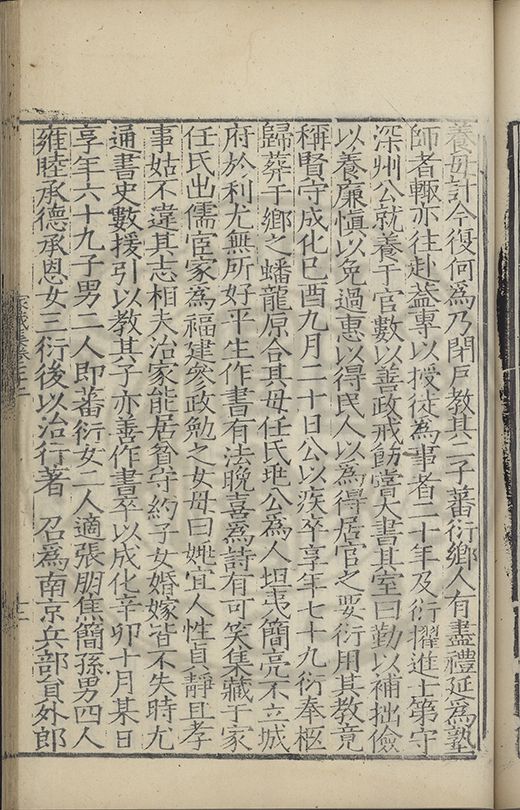 養母計今復何為乃閉戸教其二子蕃衍鄉人有盡禮延為塾
師者輙亦往赴益專以授徒為事者二十年及衍擢進士第守
深州公就養于官數以善政戒飭嘗大書其室曰勤以補拙儉
以養廉慎以免過惠以得民人以為得居官之要衍用其教竟
稱賢守成化巳酉九月二十日公以疾卒享年七十九衍奉柩
歸葬于鄉之蟠龍原合其母任氏地公為人坦夷簡亮不立城
府於利尤無所好平生作書有法晚喜為詩有可笑集藏于家
任氏出儒宦家為福建叅政勉之女母曰姚宜人性貞靜且孝
事姑不違其志相夫治家能居貧守約子女婚嫁皆不失時尤
通書史數援引以教其子亦善作書卒以成化辛卯十月某日
享年六十九子男二人即蕃衍女二人適張朋焦簡孫男四人
雍睦承德承恩女三衍後以治行著　召為南京兵部員外郎